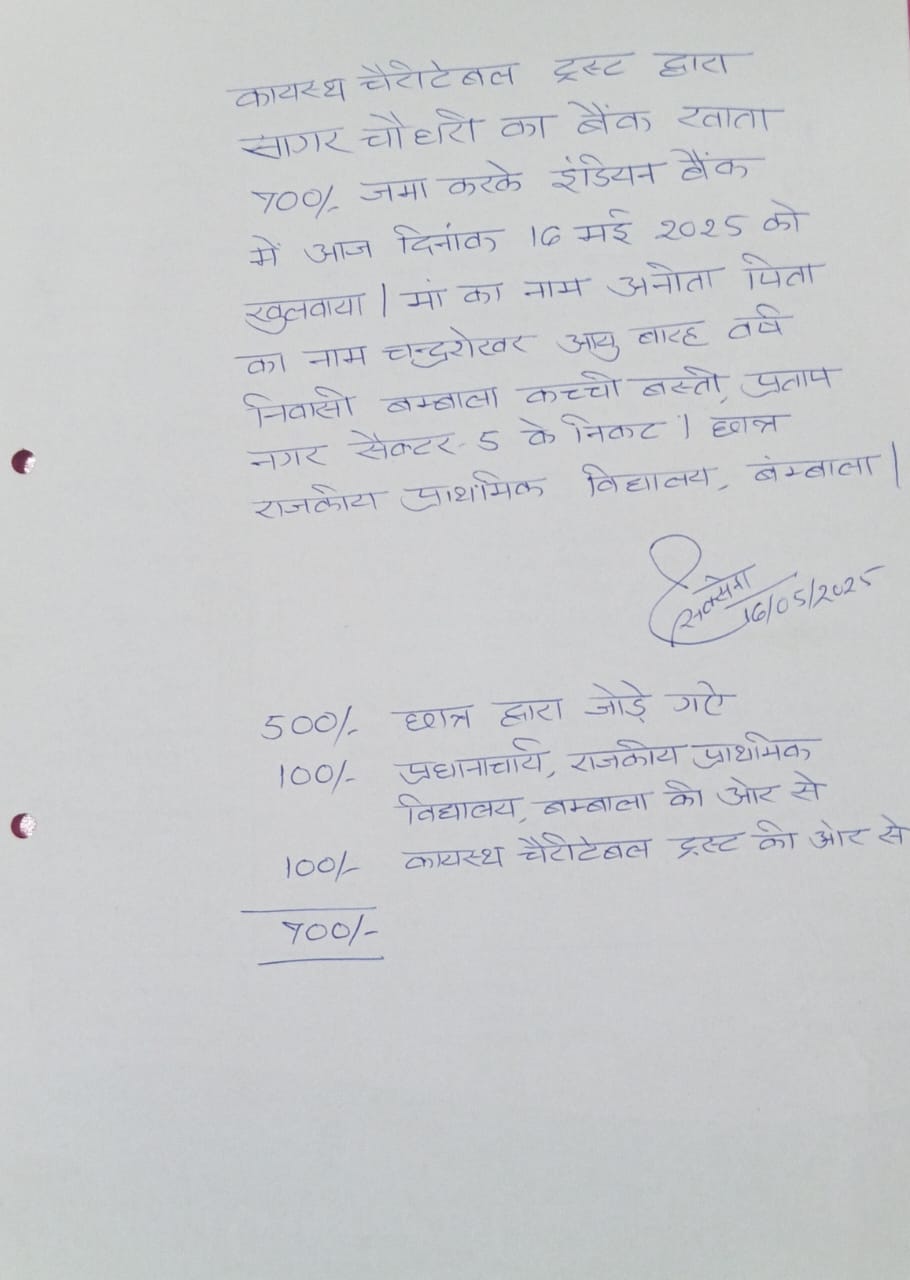 कायस्थ चैरीटेबल ट्रस्ट द्वारा
सागर चौधरी का बैंक खाता
700/- जमा करके इंडियन बैंक
में आज दिनांक 16 मई 2025 को
खुलवाया। मां का नाम अनीता पिता
का नाम चन्द्रशेखर आयु बारह वर्ष
निवासी बम्बाला कच्ची बस्ती, प्रताप
नगर सैक्टर-5 के निकट। छात्र
राजकीय प्राथमिक विद्यालय, बंम्बाला।
सक्सेना
16/05/2025
500/- छात्र द्वारा जोड़े गऐ
100/- प्रधानाचार्य, राजकीय प्राथमिक
विद्यालय, बम्बाला की ओर से
100/- कायस्थ चैरीटेबल ट्रस्ट की ओर से
700/-